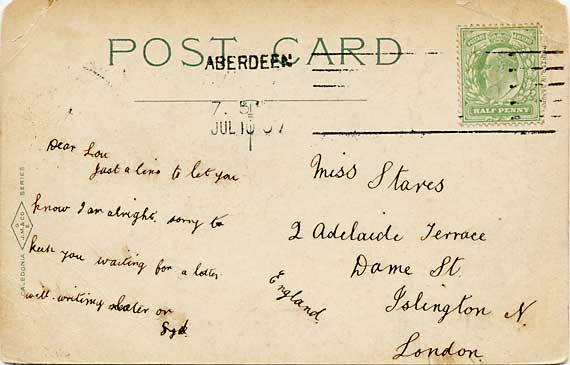 POST CARD
ABERDEEN
7. 30
JUL 10 07
HALF PENNY
Dear Lou
Just a line to let you
know I am alright. sorry to
keep you waiting for a letter
will writing later on
Syd.
Miss Stares
2 Adelaide Terrace
Dame St.
Islington N.
London.
England.
CALEDONIA J.M.&CO SERIES